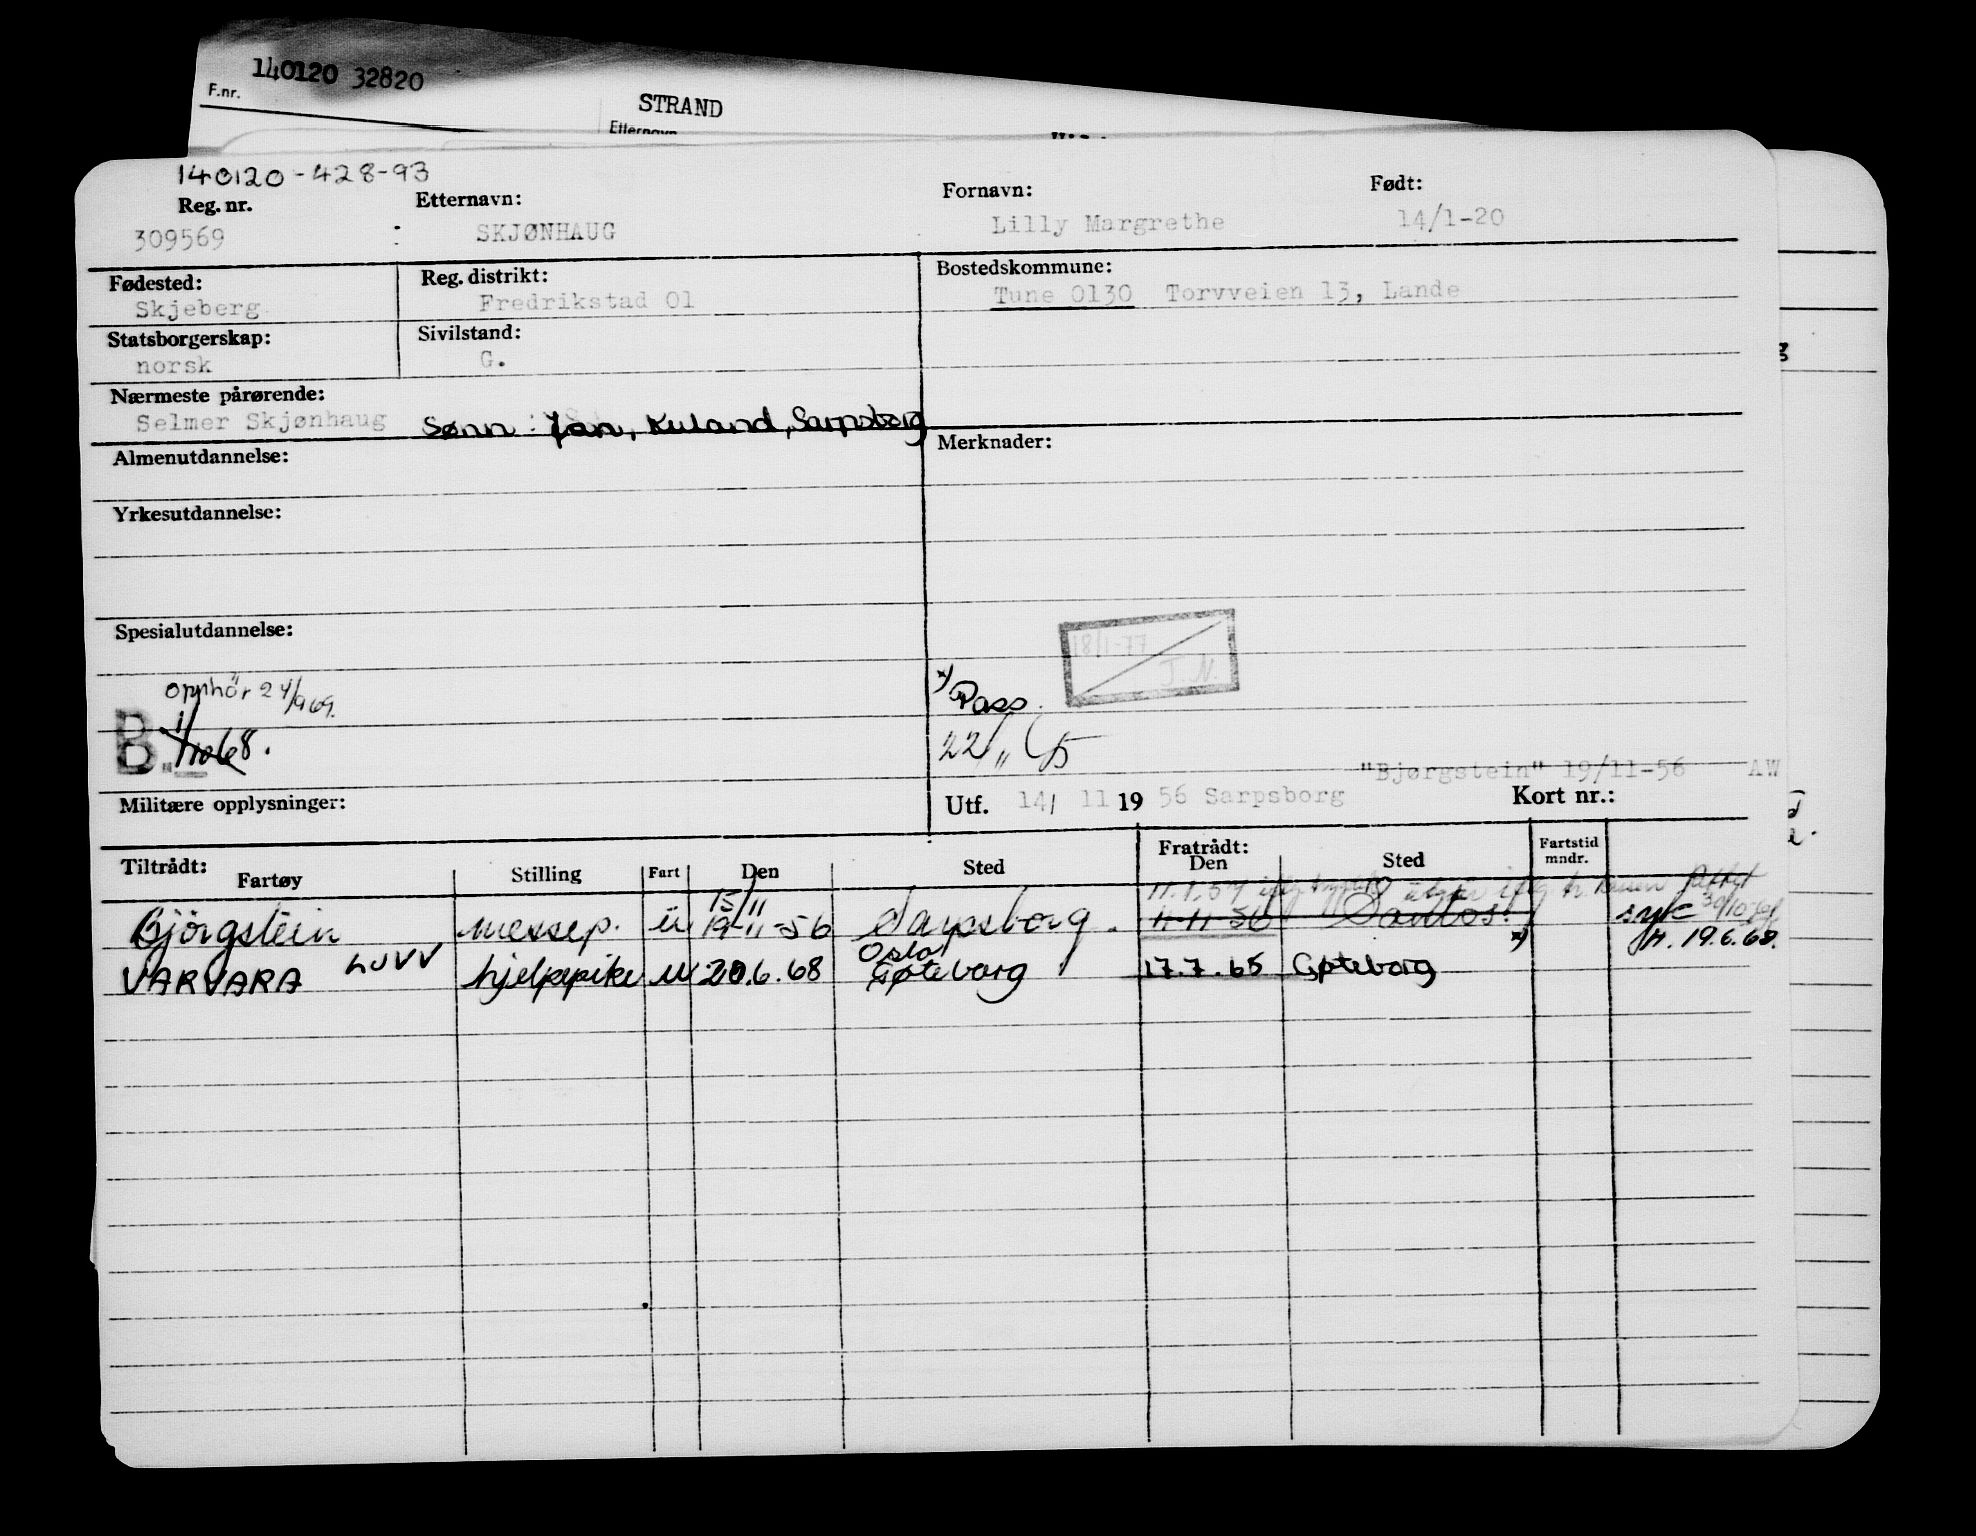 140120 32820
F.nr.
STRAND
Etternavn
140120-428-93
Reg. nr. Etternavn: Fornavn: Født:
309569 : SKJØNHAUG Lilly Margrethe 14/1-20
Fødested: Reg. distrikt: Bostedskommune:
Skjeberg Fredrikstad 01 Tune 0130 Torvveien 13, Lande
Statsborgerskap: Sivilstand:
norsk G.
Nærmeste pårørende:
Selmer Skjønhaug Sønn: Jan, Kuland, Sarpsborg
Almenutdannelse: Merknader:
Yrkesutdannelse:
Spesialutdannelse:
18/1-77
J.N.
opphör 24/9 69.
x) Pass.
B. 1/10 68.
"Bjørgstein" 19/11-56 AW
Militære opplysninger: Utf. 14/ 11 19 56 Sarpsborg Kort nr.:
Tiltrådt: Fratrådt: Fartstid mndr.
Fartøy Stilling Fart Den Sted Den Sted
15/11 11.1.57
Bjørgstein messep. u 19-11-56 Sarpsborg. Santos. syk 30/10
Oslo x) H. 19.6.68.
VARVARA LJVV hjelpepike u 20.6.68 Gøteborg 17.7.65 Gøteborg